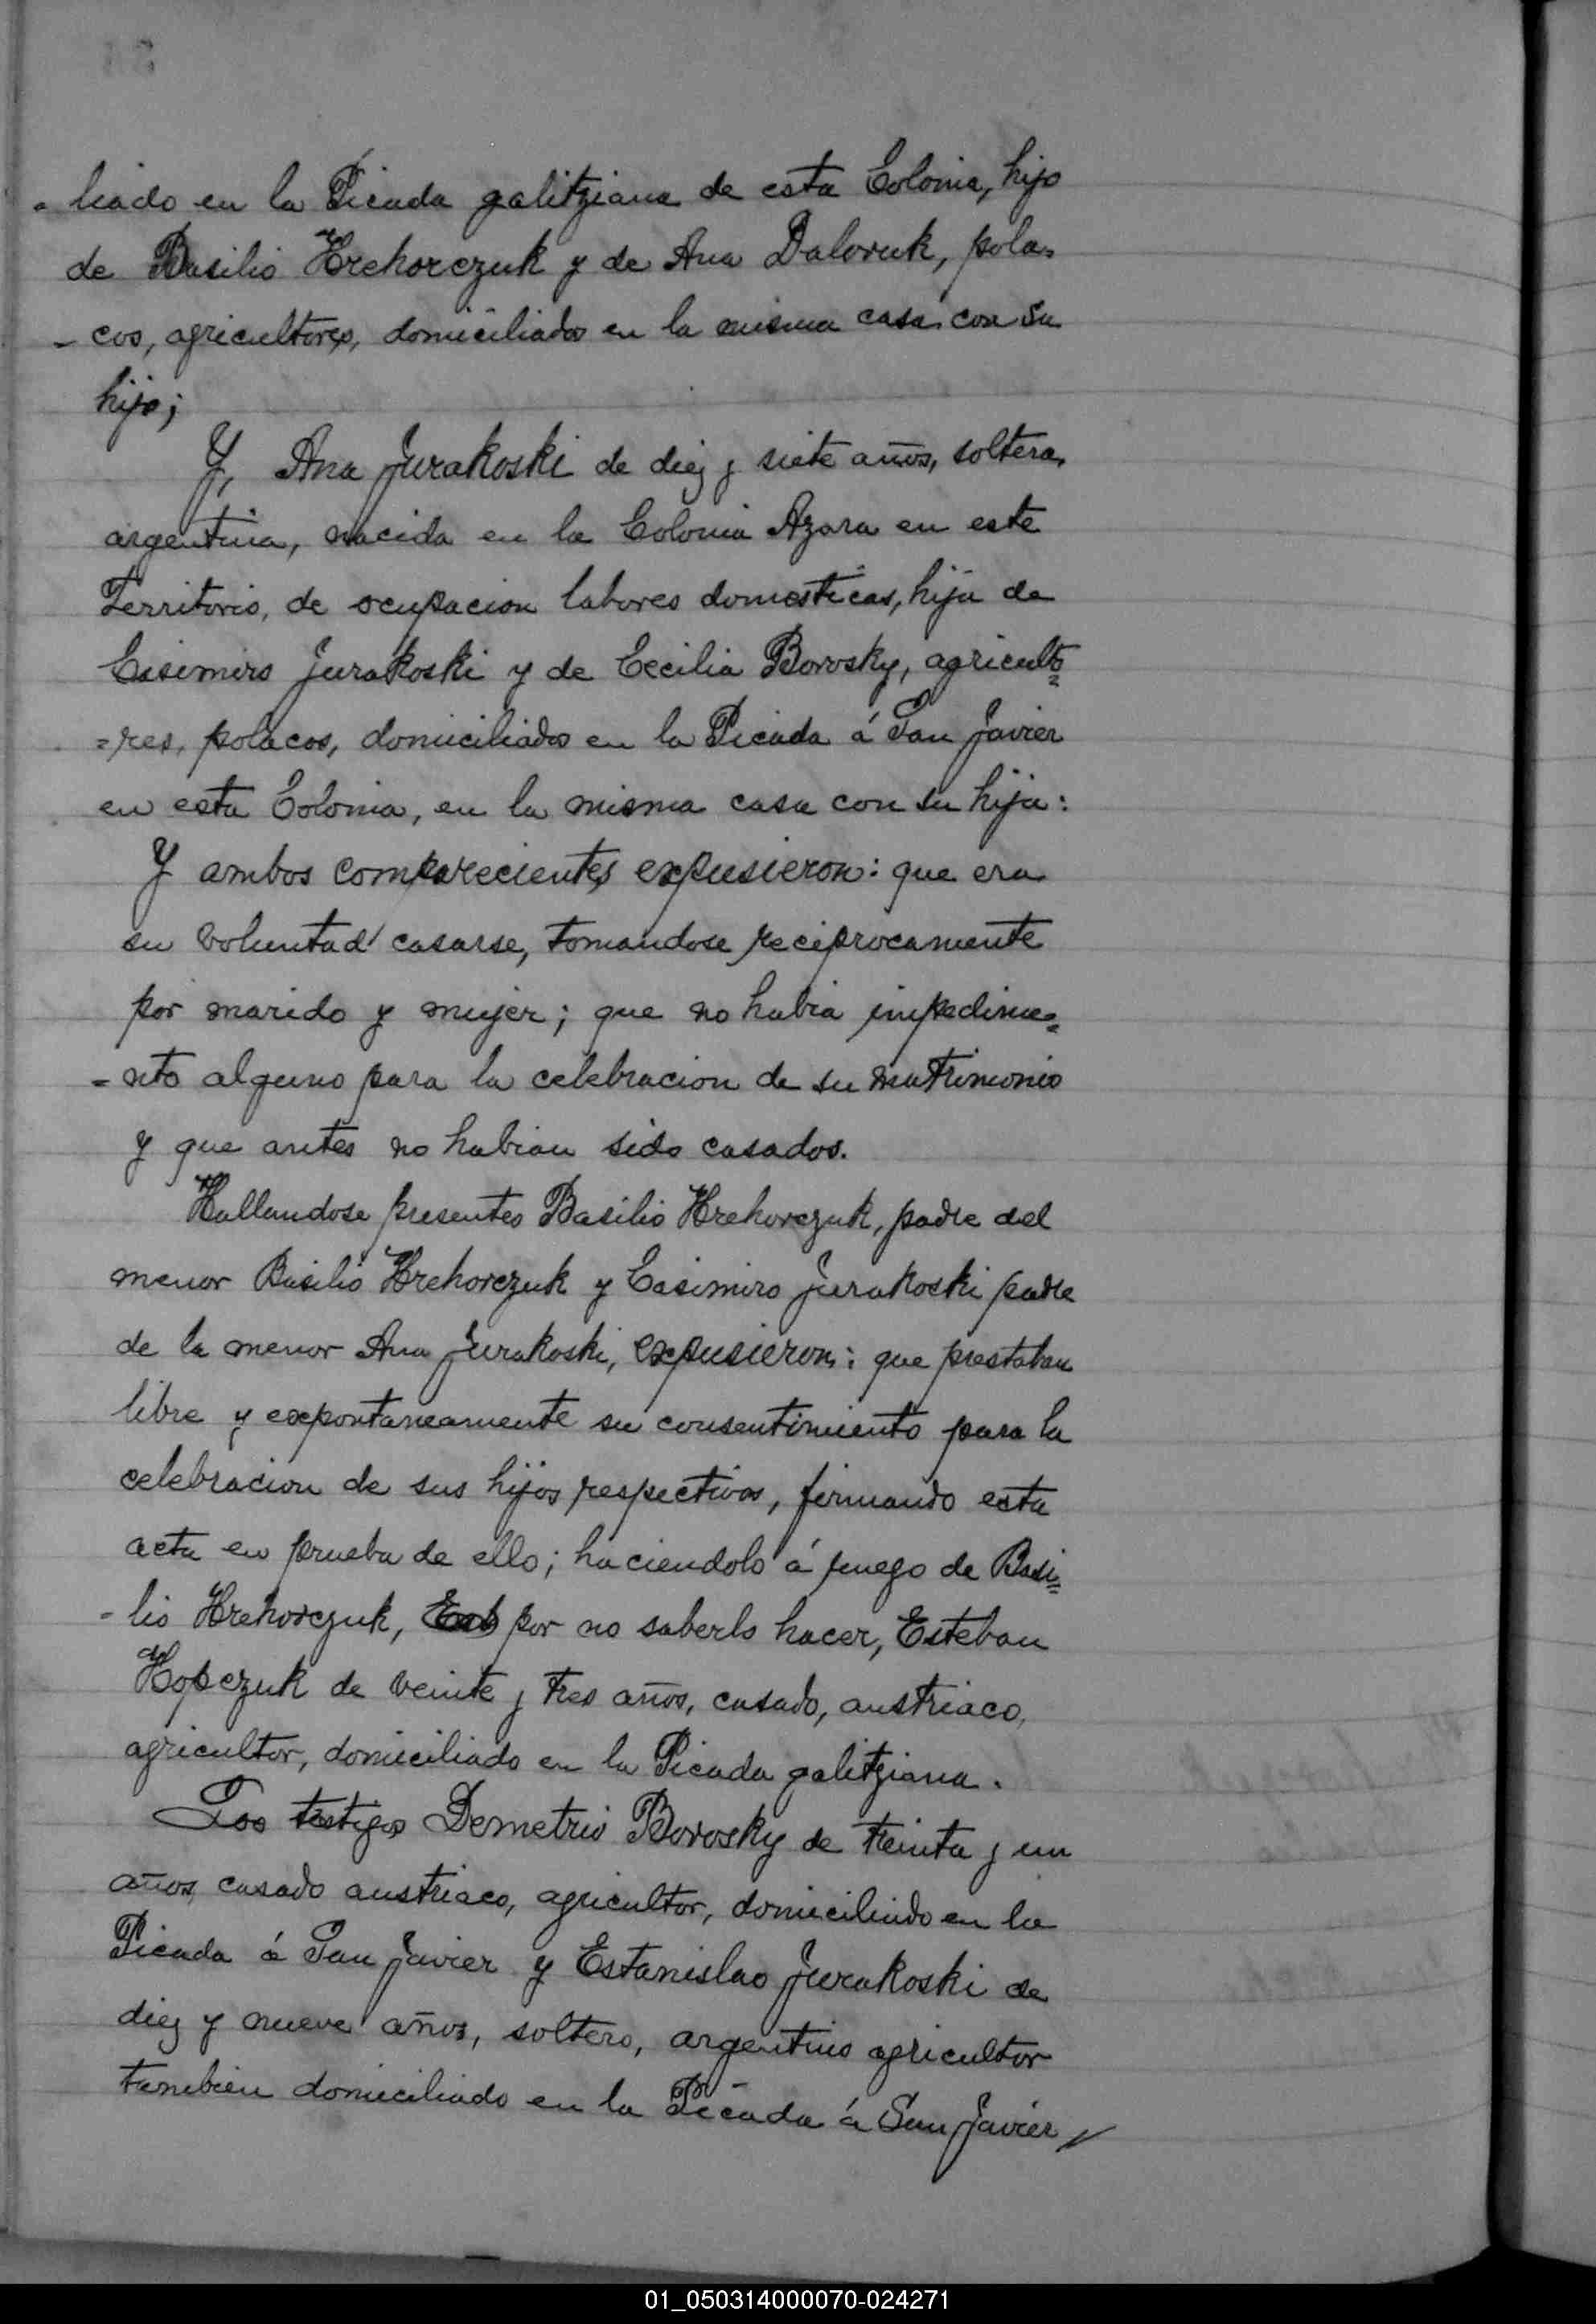 -liado en la Picada galitziana de esta Colonia, hijo
de Basilio Hrehorczuk y de Ana Daloruk, pola-
- cos, agricultores, domiciliados en la misma casa con su
hijo;
Y, Ana Jurakoski de diez y siete años, soltera,
argentina, nacida en la Colonia Azara en este
Territorio, de ocupacion labores domesticas, hija de
Casimiro Jurakoski y de Cecilia Borosky, agriculto=
=res, polacos, domiciliados en la Picada á San Javier
en esta Colonia, en la misma casa con su hija:
Y ambos comparecientes expusieron: que era
su voluntad casarse, tomandose reciprocamente
por marido y mujer; que no habia impedime=
= nto alguno para la celebracion de su matrimonio
y que antes no habian sido casados.
Hallandose presentes Basilio Hrehorczuk, padre del
menor Basilio Hrehorczuk y Casimiro Jurakoski padre
de la menor Ana Jurakoski, expusieron: que prestaban
libre y expontaneamente su consentimiento para la
celebracion de sus hijos respectivos, firmando esta
acta en prueba de ello; haciendolo á ruego de Basi=
- lio Hrehorczuk, por no saberlo hacer, Esteban
Hopczuk de veinte y tres años, casado, austriaco,
agricultor, domiciliado en la Picada galitziana.
Los testigos Demetrio Borosky de treinta y un
años, casado austriaco, agricultor, domiciliado en la
Picada á San Javier y Estanislao Jurakoski de
diez y nueve años, soltero, argentino agricultor
tambien domiciliado en la Picada á San Javier
01_050314000070-024271